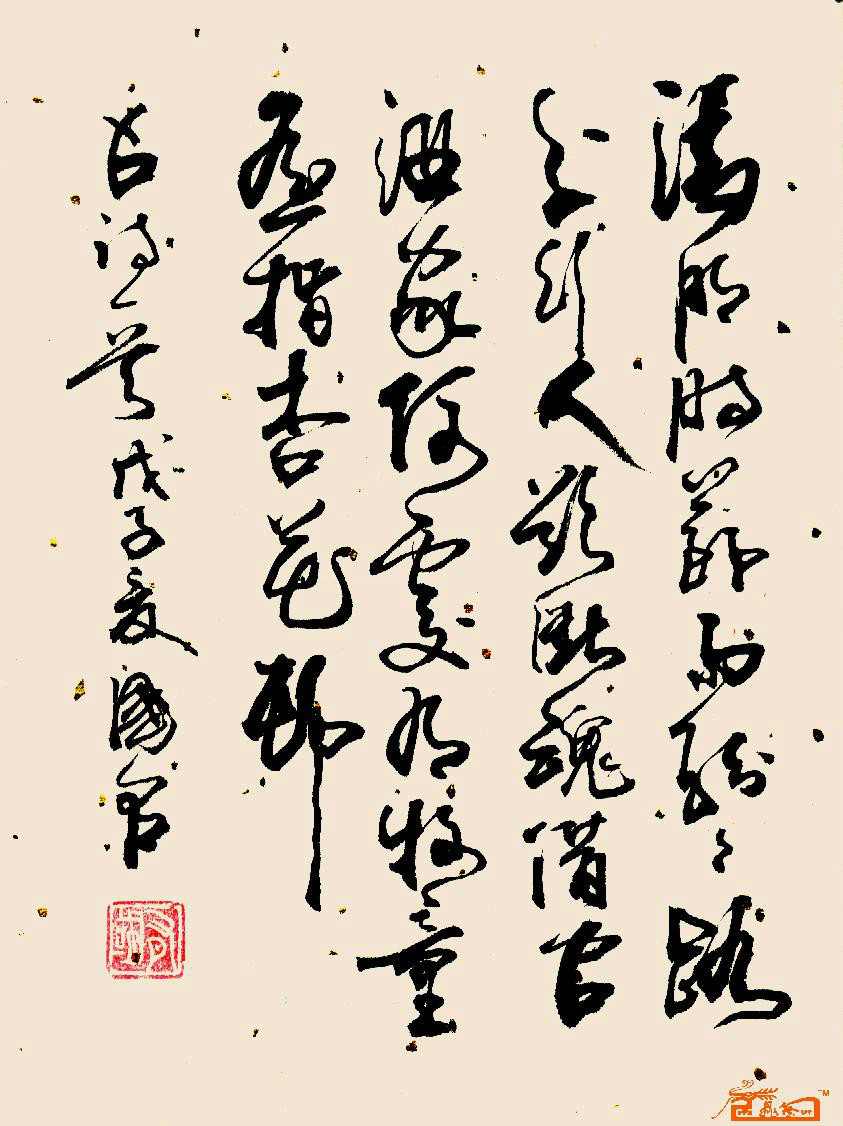 清明時節雨紛々路
上行人欲斷魂借问
酒家何處有牧童
遥指杏花邨
古诗一首戊子夏國